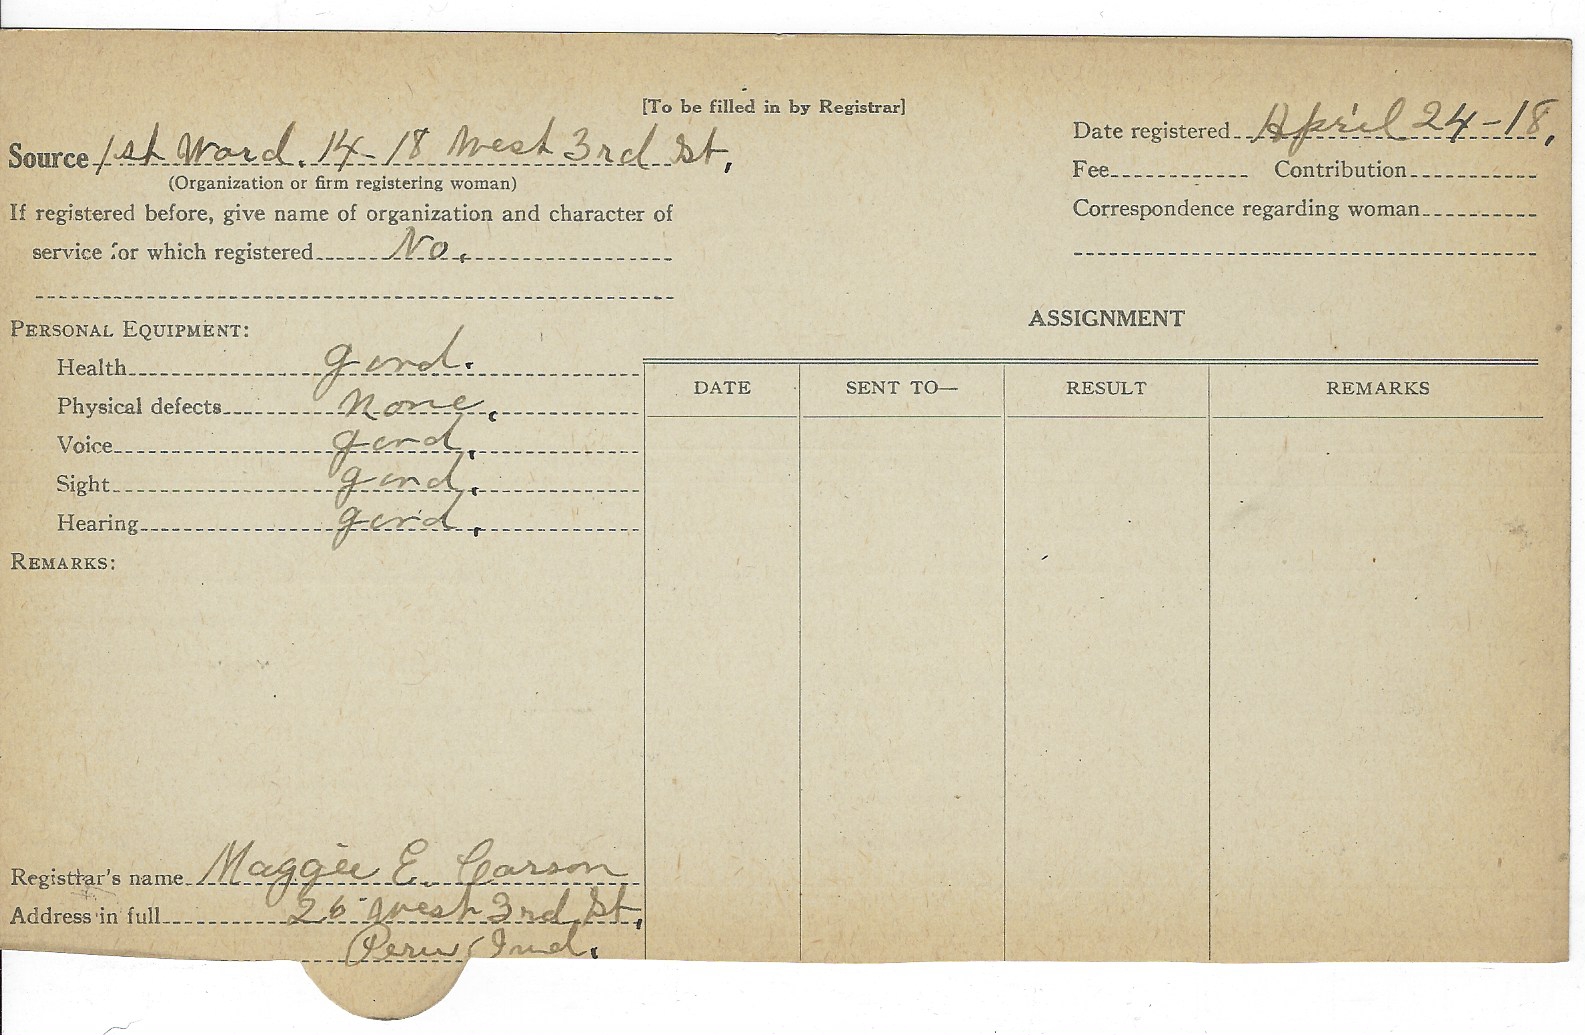 [To be filled in by Registrar]
Source 1st Ward. 14-18 West 3rd St,
(Organization or firm registering woman)
If registered before, give name of organization and character of
service for which registered No.
Date registered April 24-18,
Fee Contribution
Correspondence regarding woman
PERSONAL EQUIPMENT:
Health good.
Physical defects None.
Voice good.
Sight good.
Hearing good.
REMARKS:
ASSIGNMENT
DATE SENT TO— RESULT REMARKS
Registrar's name Maggie E. Carson
Address in full 26 West 3rd St,
Peru Ind.